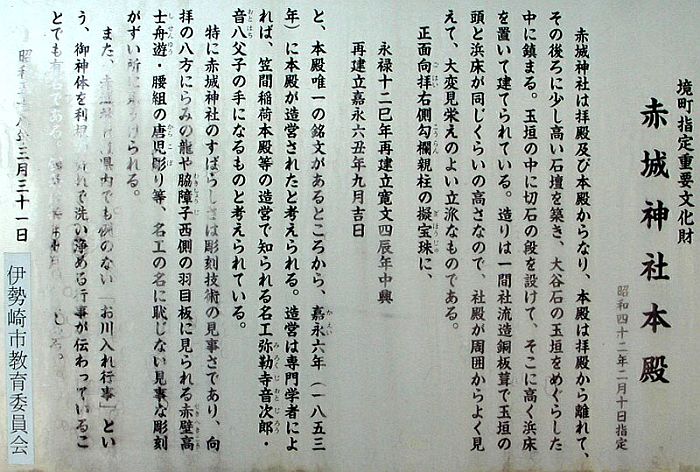 境町指定重要文化財
赤城神社本殿
昭和四十二年二月十日指定
赤城神社は拝殿及び本殿からなり、本殿は拝殿から離れて、
その後ろに少し高い石壇を築き、大谷石の玉垣をめぐらした
中に鎮まる。玉垣の中に切石の段を設けて、そこに高く浜床
を置いて建てられている。造りは一間社流造銅板葺で玉垣の
頭と浜床が同じくらいの高さなので、社殿が周囲からよく見
えて、大変見栄えのよい立派なものである。
正面向拝右側勾欄親柱の擬宝珠に、
永禄十二巳年再建立寛文四辰年中興
再建立嘉永六丑年九月吉日
と、本殿唯一の銘文があるところから、嘉永六年（一八五三
年）に本殿が造営されたと考えられる。造営は専門学者によ
れば、笠間稲荷本殿等の造営で知られる名工弥勒寺音次郎・
音八父子の手になるものと考えられている。
特に赤城神社のすばらしさは彫刻技術の見事さであり、向
拝の八方にらみの龍や脇障子西側の羽目板に見られる赤壁高
士舟遊・腰組の唐児彫り等、名工の名に恥じない見事な彫刻
がずい所に見うけられる。
また、赤城神社は県内でも例のない「お川入れ行事」とい
う、御神体を利根の流れで洗い浄める行事が伝わっているこ
とでも有名である。
昭和五十八年三月三十一日
伊勢崎市教育委員会